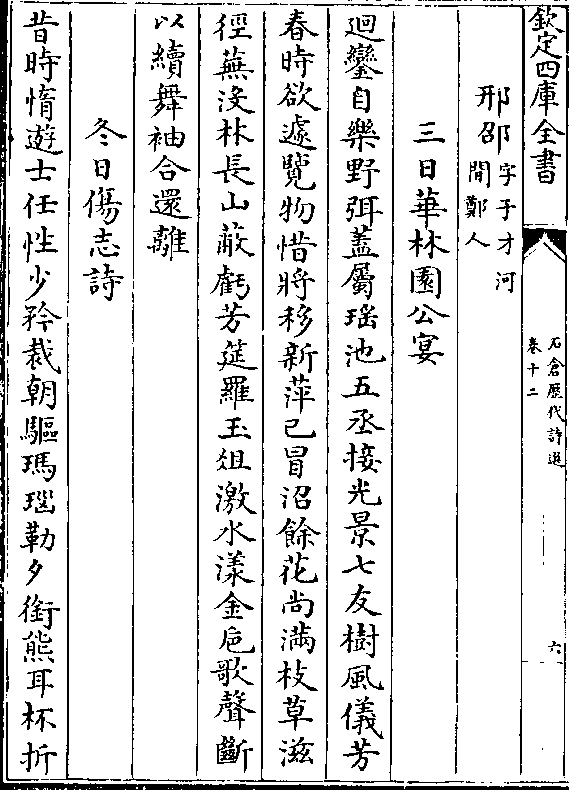 欽定四庫全書
石倉歷代詩選
卷十二
六
邢邵字子才河
間鄭人
三日華林園公宴
迴鑾自樂野弭蓋屬瑶池五丞接光景七友樹風儀芳
春時欲遽覽物惜將移新萍已冒沼餘花尚滿枝草滋
徑蕪沒林長山蔽虧芳筵羅玉俎激水漾金巵歌聲斷
以續舞袖合還離
冬日傷志詩
昔時惰遊士任性少矜裁朝驅瑪瑙勒夕銜熊耳杯折